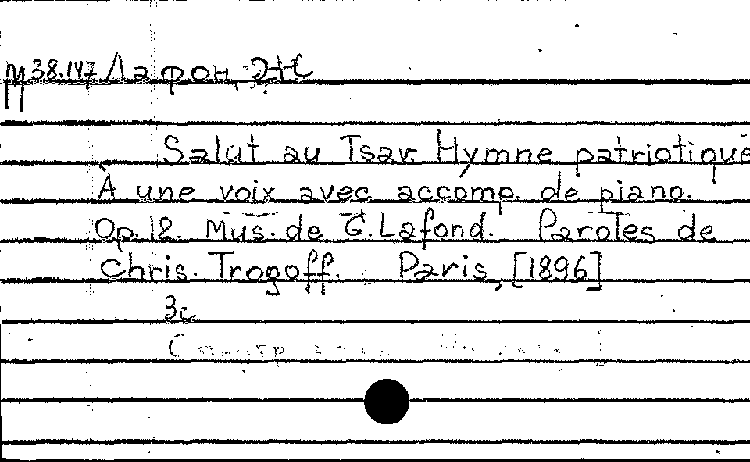 М 38.147 Лафон, Ж
Salut au Tsar. Hymne patriotique
À une voix avec accomp. de piano.
Op. 12. Mus. de G. Lafond. Paroles de
Chris. Trogoff. Paris, [1896]
3с